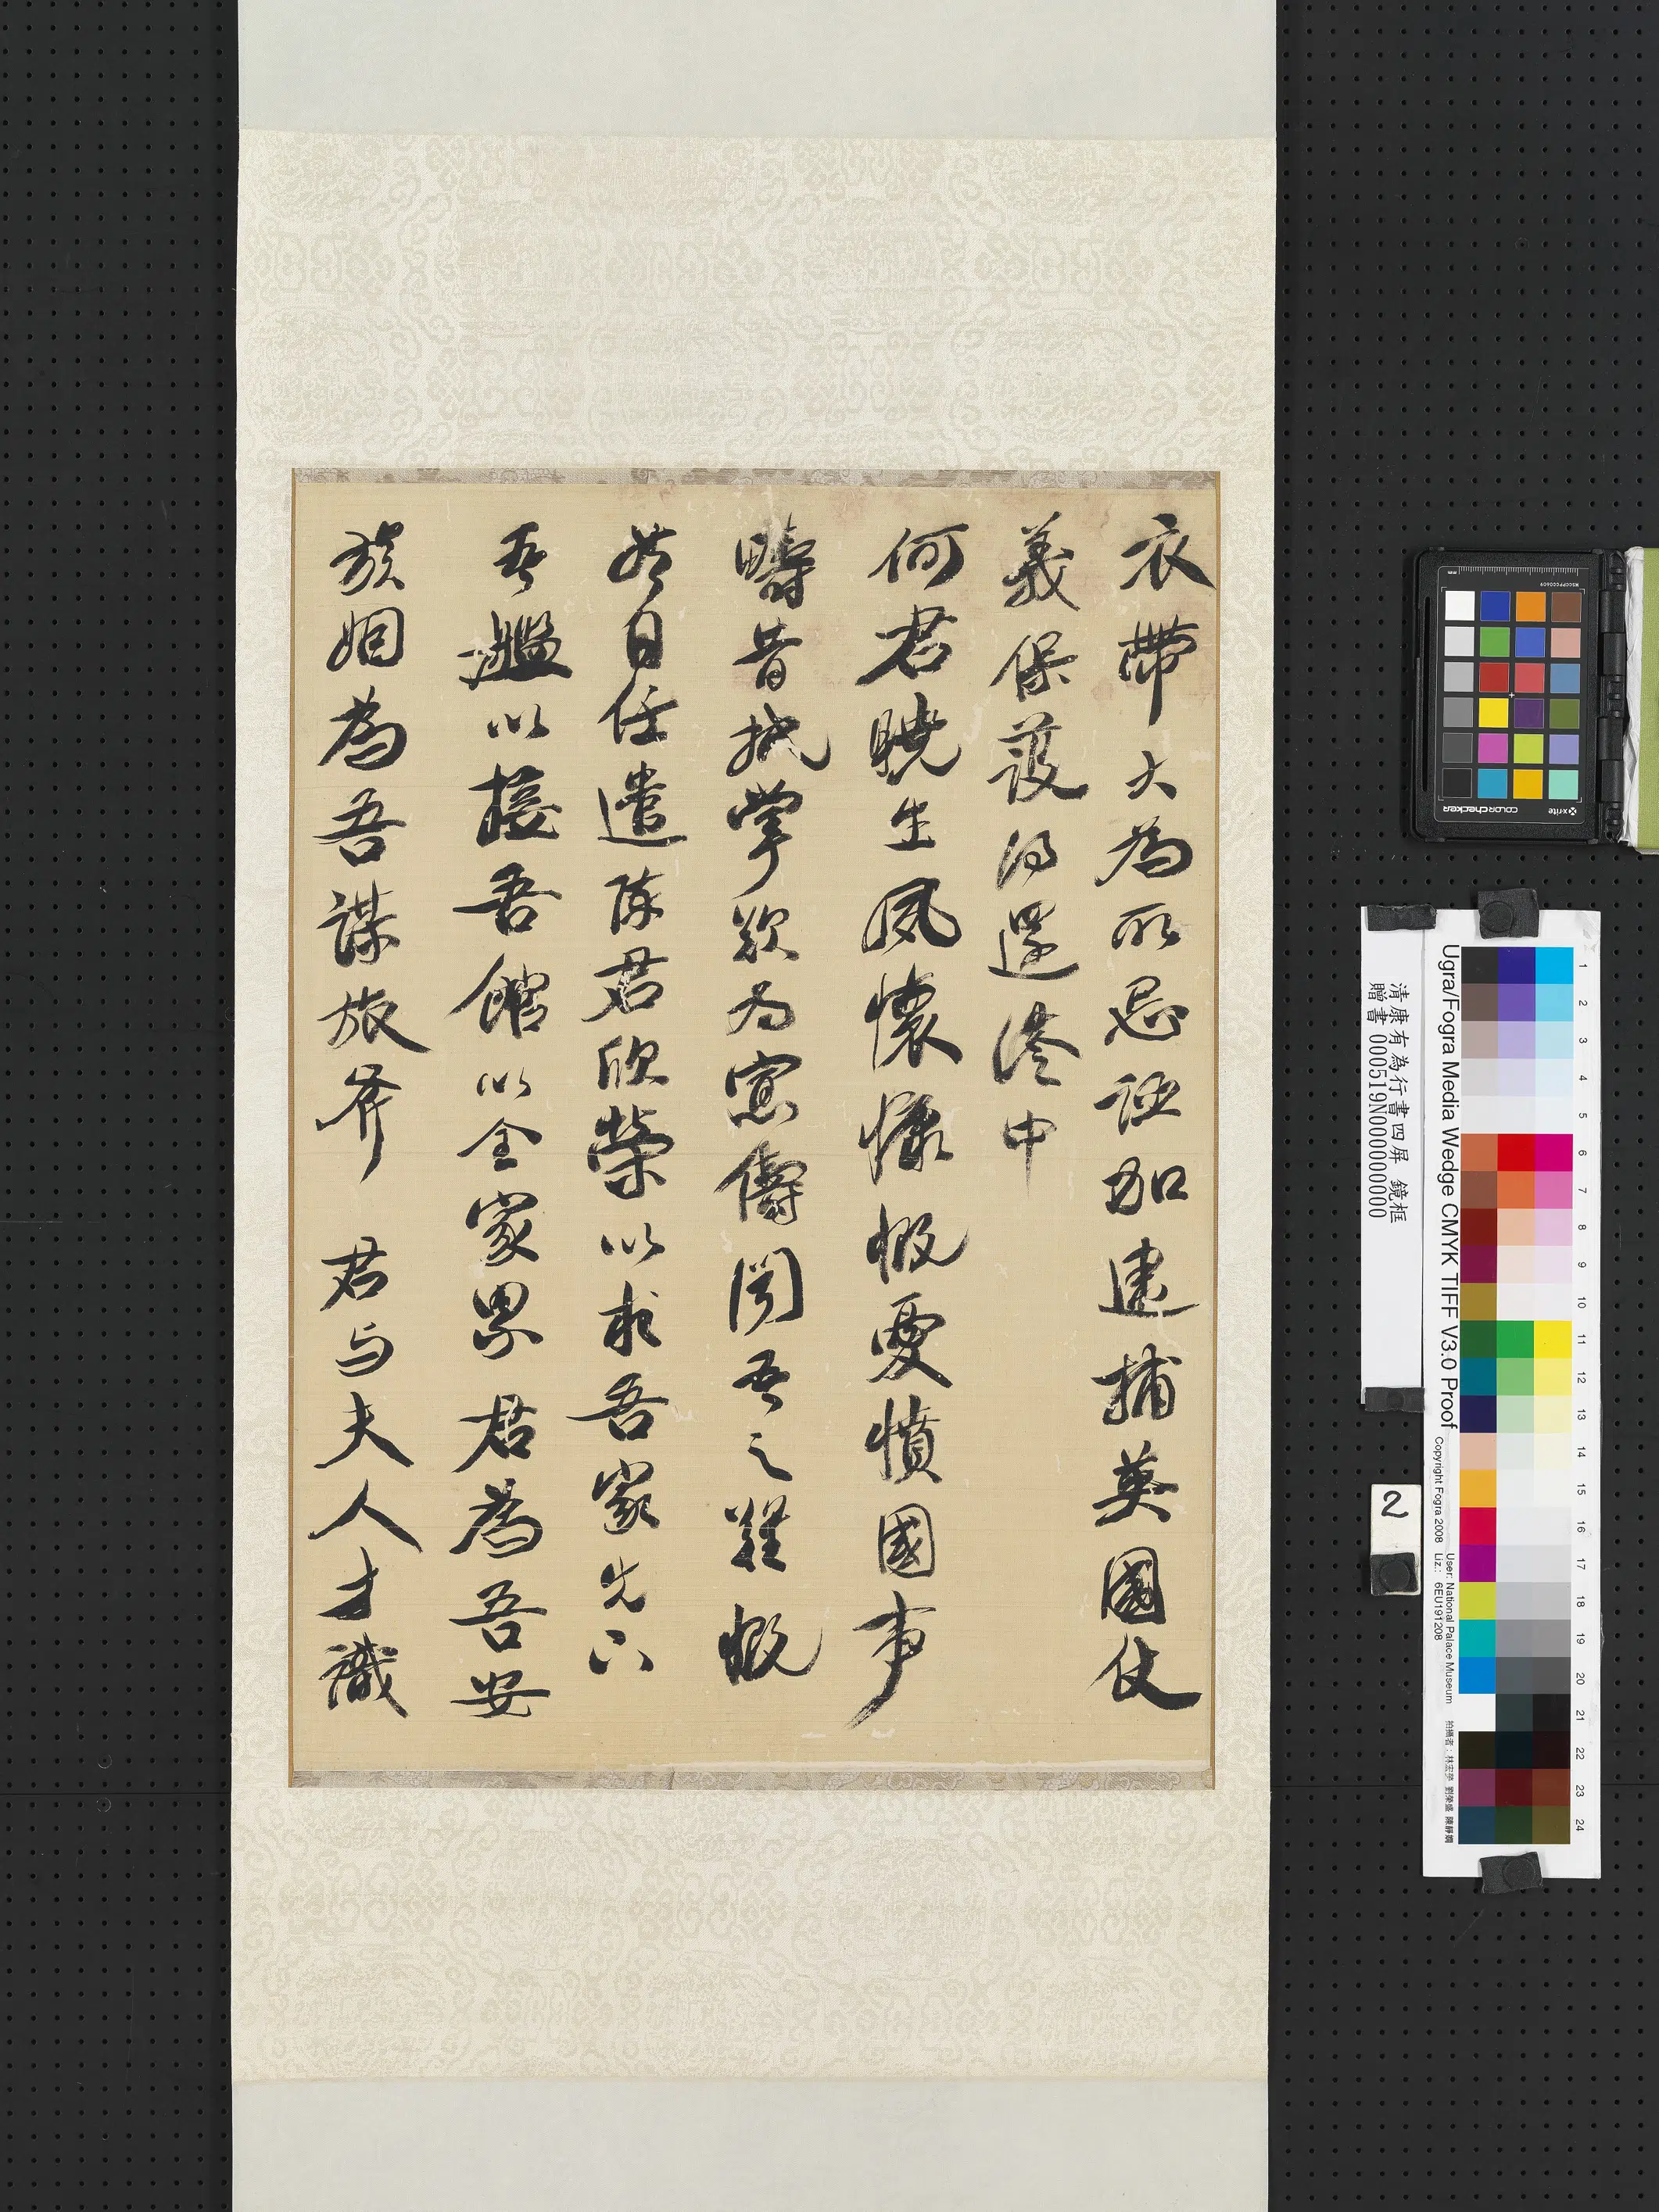 衣帶大為所忌誣加逮捕英國仗
義保護得還港中
何君曉生夙懷慷慨憂憤國事
疇昔抵掌欵為密儔聞吾之難慨
然日任遣陳君欣榮以求吾家先以
吾艦以接吾館以全家累君為吾安
族姻為吾謀旅齐 君与夫人才識
清康有為行書四屏 鏡框
贈書 000519N000000000
2
xrite
colorchecker
MSCCPPCC0609
Ugra/Fogra Media Wedge CMYK TIFF V3.0 Proof
Copyright Fogra 2008 User: National Palace Museum
Liz.: 6EU191208
1
2
3
4
5
6
7
8
9
10
11
12
13
14
15
16
17
18
19
20
21
22
23
24